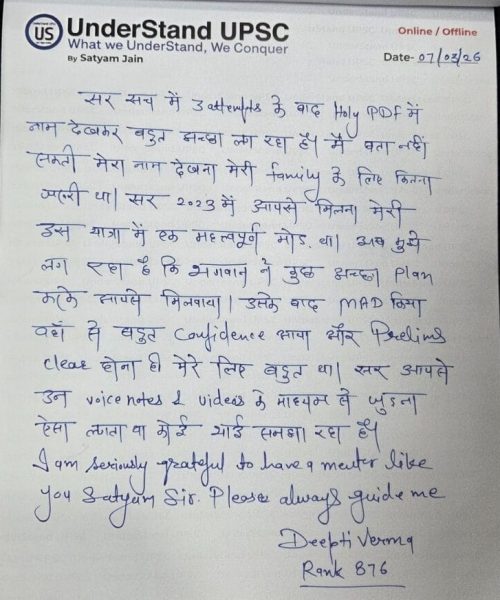 UnderStand UPSC
What we UnderStand, We Conquer
By Satyam Jain
Online / Offline
Date- 07/03/26
सर सच में 3 attempts के बाद Holy PDF में
नाम देखकर बहुत अच्छा लग रहा है। मैं बता नहीं
सकती मेरा नाम देखना मेरी family के लिए कितना
जरूरी था। सर 2023 में आपसे मिलना मेरी
इस यात्रा में एक महत्वपूर्ण मोड़ था। अब मुझे
लग रहा है कि भगवान ने कुछ अच्छा Plan
करके आपसे मिलवाया। उसके बाद MAD किया
वहाँ से बहुत Confidence आया और Prelims
clear होना ही मेरे लिए बहुत था। सर आपसे
उन voice notes & videos के माध्यम से जुड़ना
ऐसा लगता था कोई भाई समझा रहा है।
I am seriously grateful to have a mentor like
you Satyam Sir. Please always guide me
Deepti Verma
Rank 876